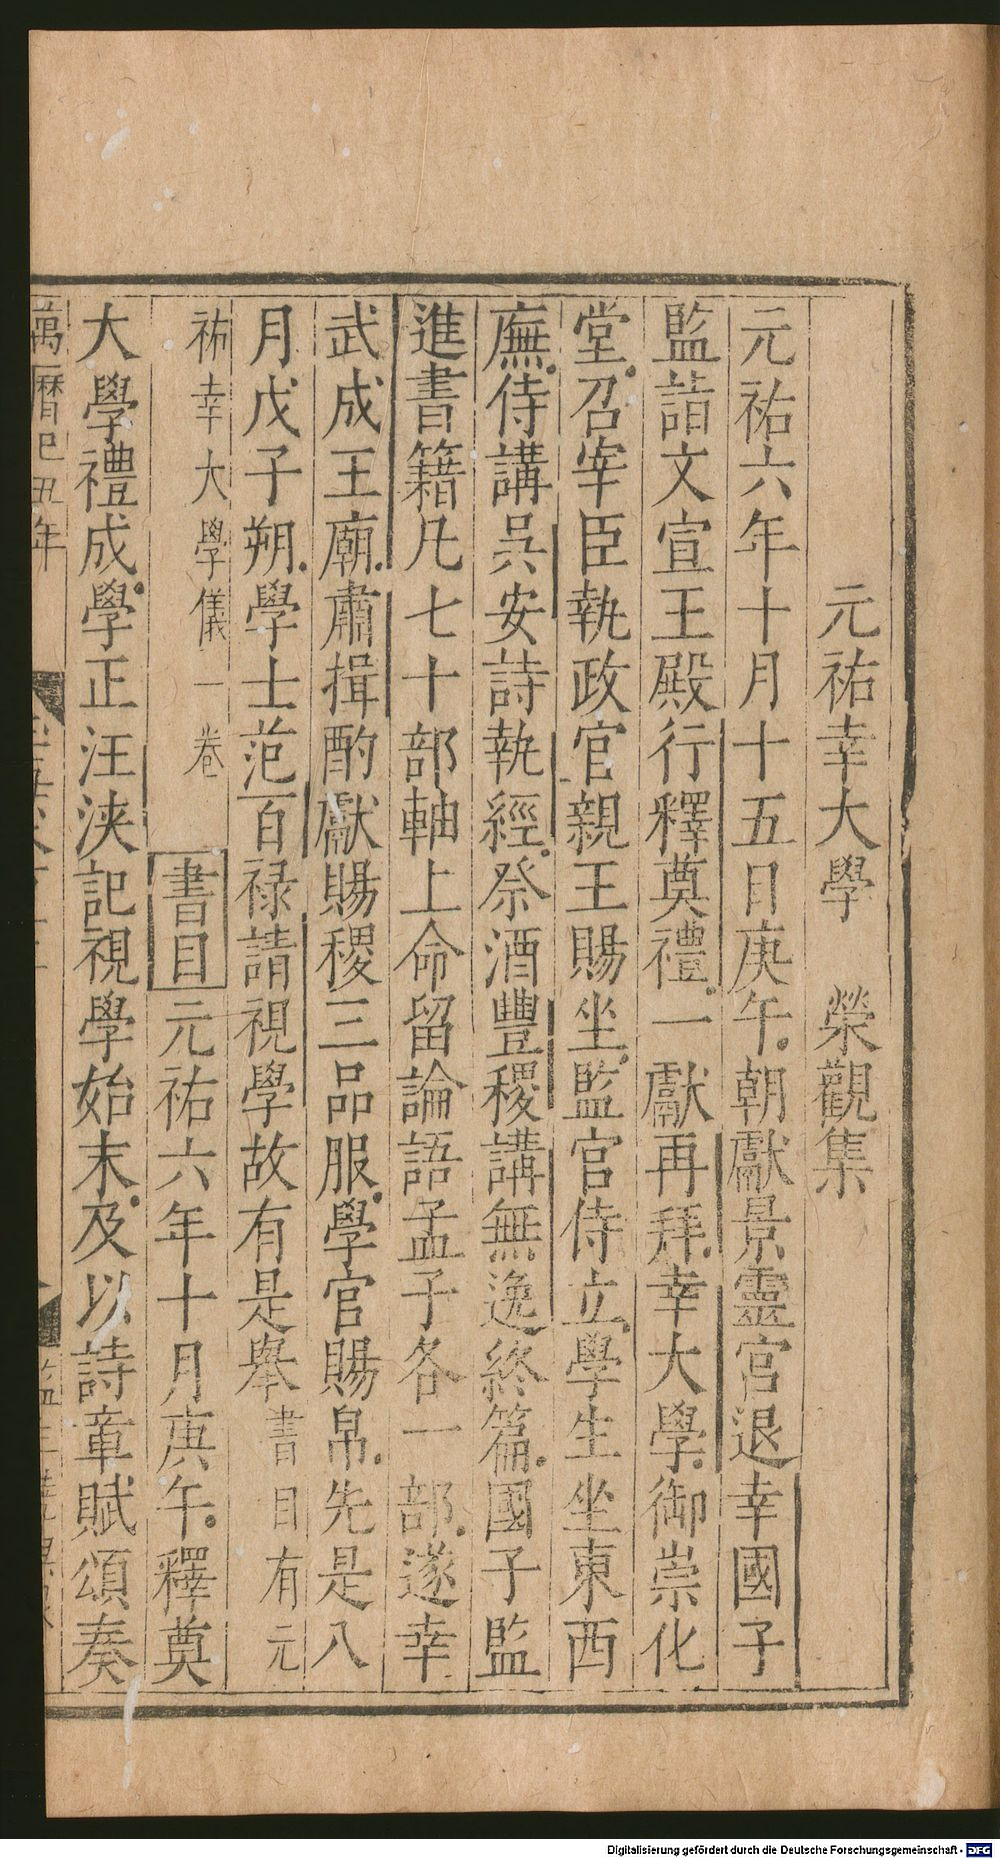 元祐幸大學　榮觀集
元祐六年十月十五日庚午朝獻景靈宮退幸國子
監詣文宣王殿行釋奠禮一獻再拜幸大學御崇化
堂召宰臣執政官親王賜坐監官侍立學生坐東西
廡侍講吳安詩執經祭酒豐稷講無逸終篇國子監
進書籍凡七十部軸上命留論語孟子各一部遂幸
武成王廟肅揖酌獻賜稷三品服學官賜帛先是八
月戊子朔學士范百祿請視學故有是舉書目有元
祐幸大學儀一卷　書目元祐六年十月庚午釋奠
大學禮成學正汪浹記視學始末及以詩章賦頌奏
萬曆己丑年
Digitalisierung gefördert durch die Deutsche Forschungsgemeinschaft - DFG